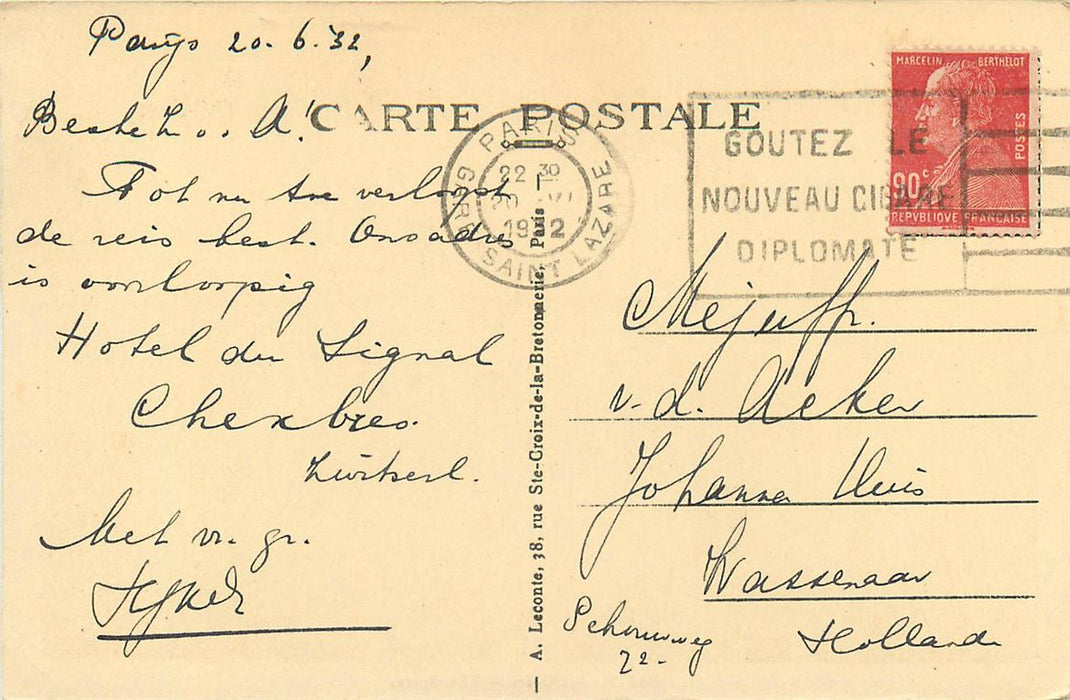 Parijs 20.6.'32,
CARTE POSTALE
Beste Z.. A!
Tot nu toe verloopt
de reis best. Ons adres
is voorloopig
Hotel du Signal
Chexbres.
Zwitserl.
Met vr. gr.
PARIS
22 30
20 VI
1932
GARE SAINT LAZARE
GOUTEZ LE
NOUVEAU CIGARE
DIPLOMATE
MARCELIN BERTHELOT
POSTES
90 c
REPVBLIQVE FRANÇAISE
A. Leconte, 38, rue Ste-Croix-de-la-Bretonnerie, Paris
Mejuffr.
v. d. Acker
Johanna Huis
Wassenaar
Schouwweg
72-
Hollande